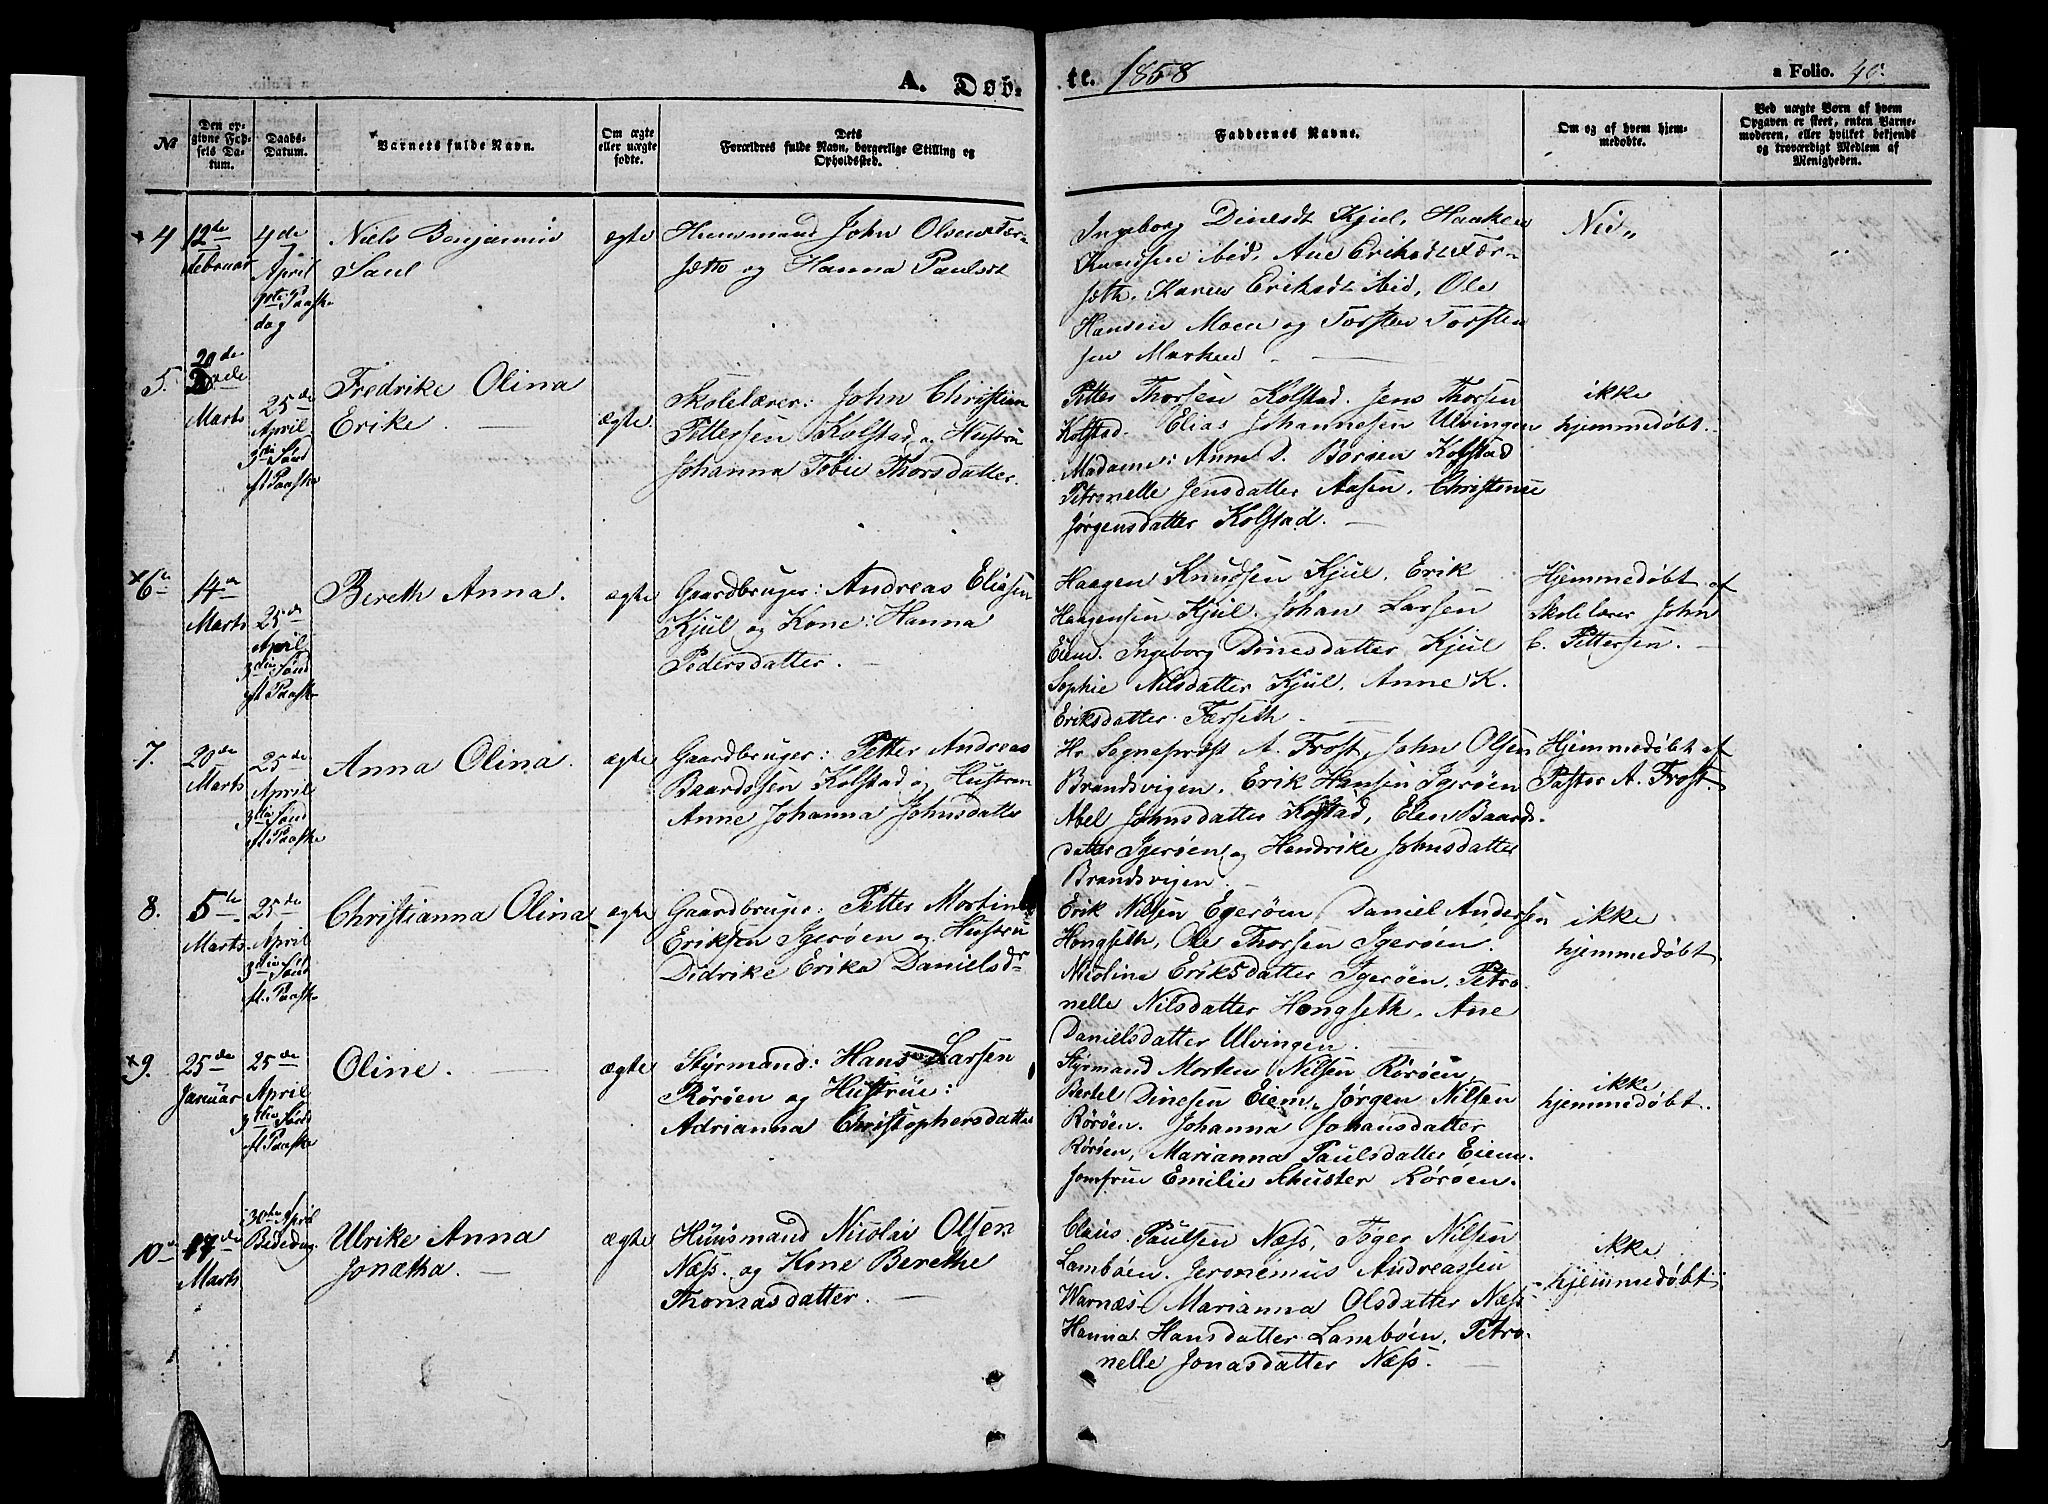 A. Døb-
te. 1858
a Folio. 40.
№
Den op-
givne Fød-
sels Da-
tum.
Daabs-
Datum.
Barnets fulde Navn.
Om ægte
eller uægte
fødte.
Dets
Forældres fulde Navn, borgerlige Stilling og
Opholdssted.
Faddernes Navne.
Om og af hvem hjem-
medøbte.
Ved uægte Børn af hvem
Opgaven er skeet, enten Barne-
moderen, eller hvilket bekjendt
og troværdigt Medlem af
Menigheden.
×4
12te
Februar
4de
April
Paaske
dag
Niels Benjamin
Saul
ægte
Huusmand John Olsen Fær-
sætto og Hanna Paulsdt
Ingeborg Dinesdt Kjul, Haaken
Knudsen ibid, Ane Eriksdt Fær-
sæth. Karen Eriksdt ibid, Ole
Hansen Moen og Torsten Torsten
sen Marken
5.
20de
Marts
25de
April
3die Sønd
ft. Paaske
Fredrike Olina
Erike.
ægte
Skolelærer: John Christian
Pettersen Kolstad og Hustru
Johanna Tobie Thorsdatter.
Petter Thorsen Kolstad. Jens Thorsen
Kolstad. Elias Johannesen Ulvingen
Madame: Anne D. Borgen Kolstad
Petronelle Jensdatter Aasen. Christense
Jørgensdatter Kolstad.
ikke
hjemmedøbt.
×6
4de
Marts
25de
April
3die Sønd
ft. Paaske
Bereth Anna.
ægte
Gaardbruger: Andreas Eliasen
Kjul og Kone: Hanna
Pedersdatter.
Haagen Knudsen Kjul. Erik
Haagensen Kjul. Johan Larsen
Eiem. Ingeborg Dinesdatter Kjul
Sophie Nilsdatter Kjul. Anne K.
Eriksdatter Færseth.
Hjemmedøbt af
Skolelærer John
C. Pettersen.
7.
20de
Marts
25de
April
3die Sønd
ft. Paaske
Anna Olina.
ægte
Gaardbruger: Petter Andreas
Baardssen Kolstad og Hustru
Anne Johanna Johnsdatter
Hr. Sogneprest A. Frost, John Olsen
Brandsvigen. Erik Hansen Igerøen
Abel Johnsdatter Kolstad, Elen Baards-
datter Igerøen og Hendrike Johnsdatter
Brandsvigen.
Hjemmedøbt af
Pastor A. Frost.
8.
5te
Marts
25de
April
3die Sønd
ft. Paaske
Christianna Olina
ægte
Gaardbruger: Petter Mortin
Eriksen Igerøen og Hustru
Didrike Erika Danielsdr
Erik Nilsen Egerøen, Daniel Andersen
Hongseth, Ole Thorsen Igerøen.
Nicoline Eriksdatter Igerøen. Petro-
nelle Nilsdatter Hongseth. Ane
Danielsdatter Ulvingen.
ikke
hjemmedøbt.
×9.
25de
Januar
25de
April
3die Sønd
ft. Paaske
Oline.
ægte
Styrmand: Hans Larsen
Rørøen og Hustrue:
Adrianna Christophersdatter
Styrmand Morten Nilsen Rørøen,
Bertel Dinesen Eiem, Jørgen Nilsen
Rørøen. Johanna Johansdatter
Rørøen, Marianna Paulsdatter Eiem.
Jomfrue Emilie Schuster Rørøen.
ikke
hjemmedøbt.
10
17de
Marts
30te April
Bededag.
Ulrike Anna
Jonætha.
ægte
Huusmand Nicolai Olsen
Næss. og Kone Berethe
Thomasdatter.
Claus Paulsen Næss, Tøger Nilsen
Lambøen. Jeronimus Andreassen
Warnæs. Marianna Olsdatter Næss
Hanna Hansdatter Lambøen, Petro-
nelle Jonasdatter Næss.
ikke
hjemmedøbt